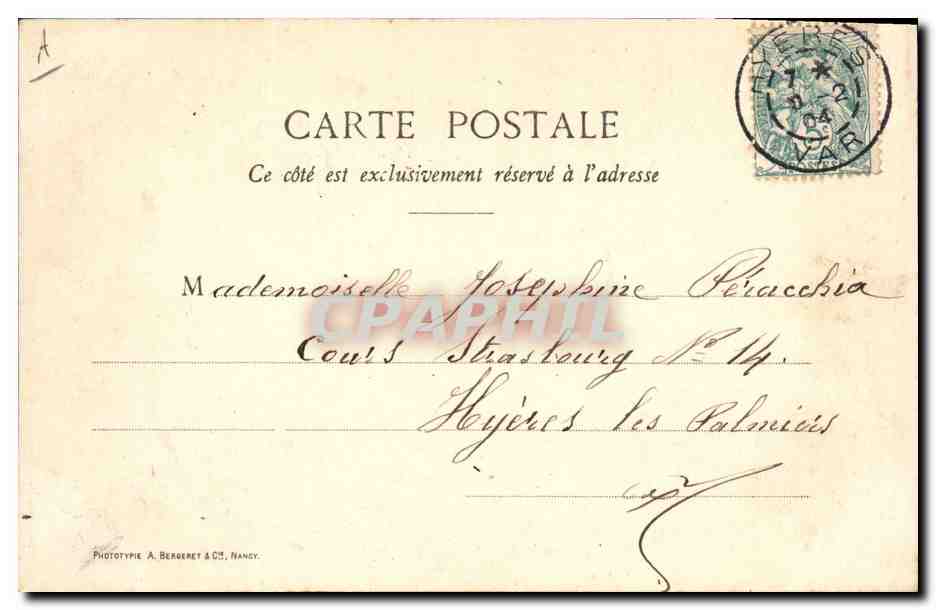 A
HYERES
7 *
9-2
04
VAR
5c
POSTES
CARTE POSTALE
Ce côté est exclusivement réservé à l'adresse
Mademoiselle Joséphine Péracchia
CPAPHIL
Cours Strasbourg Nº 14.
Hyères les Palmiers
PHOTOTYPIE A. BERGERET & Cie, NANCY.